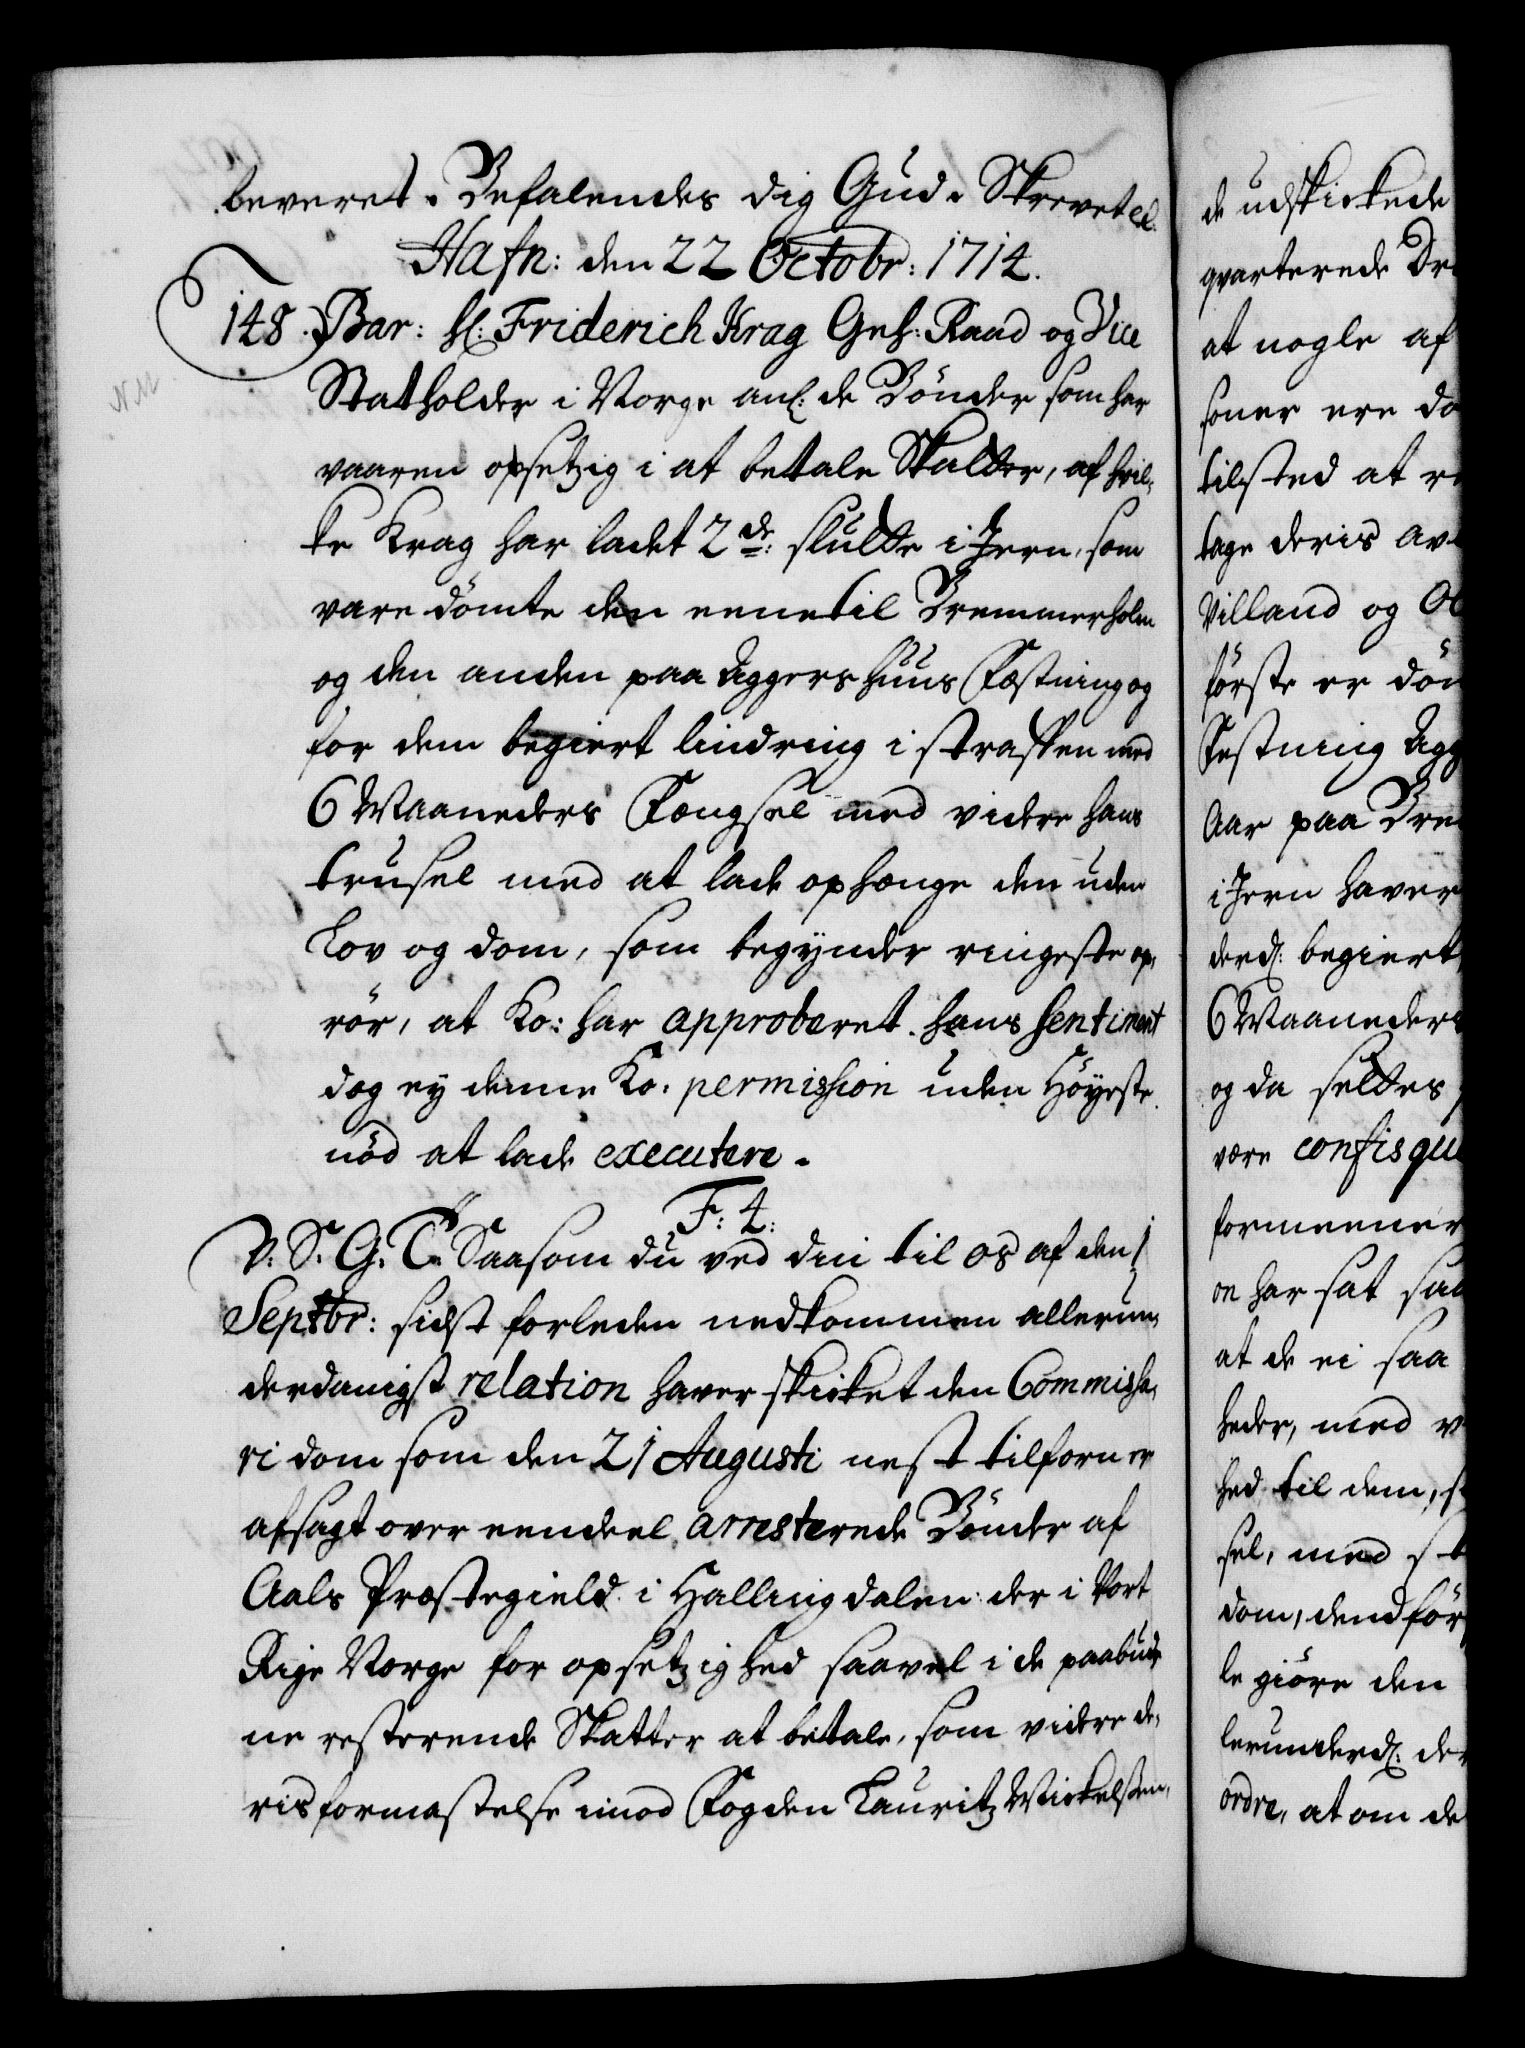 beveret. Befalendes dig Gud. Skrevet etc.
Hafn: den 22 Octobr: 1714.
148. Bar: H: Friderich Krag Geh: Raad og Vice
Statholder i Norge anl: de Bönder som har
vaaren opsetzig i at betale Skatter, af hvil-
ke Krag har ladet 2de: slutte i Jern, som
vare dömte den eene til Bremmerholm
og den anden paa Aggershuus Fæstning og
for dem begiert lindring i straffen med
6 Maaneders Fængsel med videre hans
trusel med at lade ophænge den uden
Lov og dom, som begynder ringeste op-
rör, at Ko: har approberet hans sentiment
dog ey denne Ko: permission uden Höyeste
nöd at lade executere.
F: 4:
V. S. G. T. Saasom du ved din til os af den 1
Septbr: sidst forleden nedkommen allerun-
derdanigst relation haver skicket den Commissa-
ri dom som den 21 Augusti nest tilforn er
afsagt over eendeel arresterede Bönder af
Aals Præstegield i Hallingdalen der i Vort
Rige Norge for opsetzighed saavel i de paabud-
ne resterende Skatter at betale, som videre de-
ris formastelse imod Fogden Lauritz Mickelsen,
de udskickede
qvarterede Dra
at nogle af
soner ere dö
tilsted at re
tage deris av
Villand og Ol
förste er döm
Festning Agg
Aar paa Brem
i Jern haver
derd: begiert
6 Maaneders
og da settes
være confisque
formeener
on har sat saa
at de ei saa
heder, med v
hed til dem, s
sel, med st
dom, dend för
le giöre den
lerunderd: de
ordre, at om de
N.M